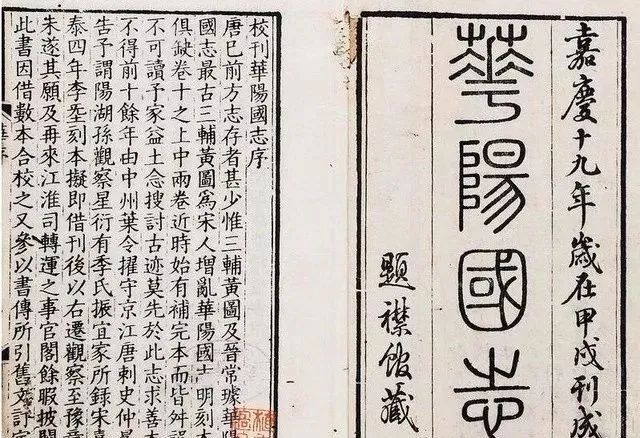 嘉慶十九年歲在甲戌刊成
華陽國志
題襟館藏
校刊華陽國志序
唐已前方志存者甚少惟三輔黃圖及晉常璩華陽
國志最古三輔黃圖爲宋人增亂華陽國志明刻本
俱缺卷十之上中兩卷近時始有補完本而皆舛
不可讀予家益土念搜討古迹莫先於此志求善本
不得前十餘年由中州葉令擢守京江唐刺史仲
告予謂陽湖孫觀察星衍有季氏振宜家所録宋嘉
泰四年李𡌴刻本擬即借刊後以右遷觀察至豫章
未遂其願及再來江淮司轉運之事官閣餘暇披閱
此書因借數本合校之又參以書傳所引舊文訂